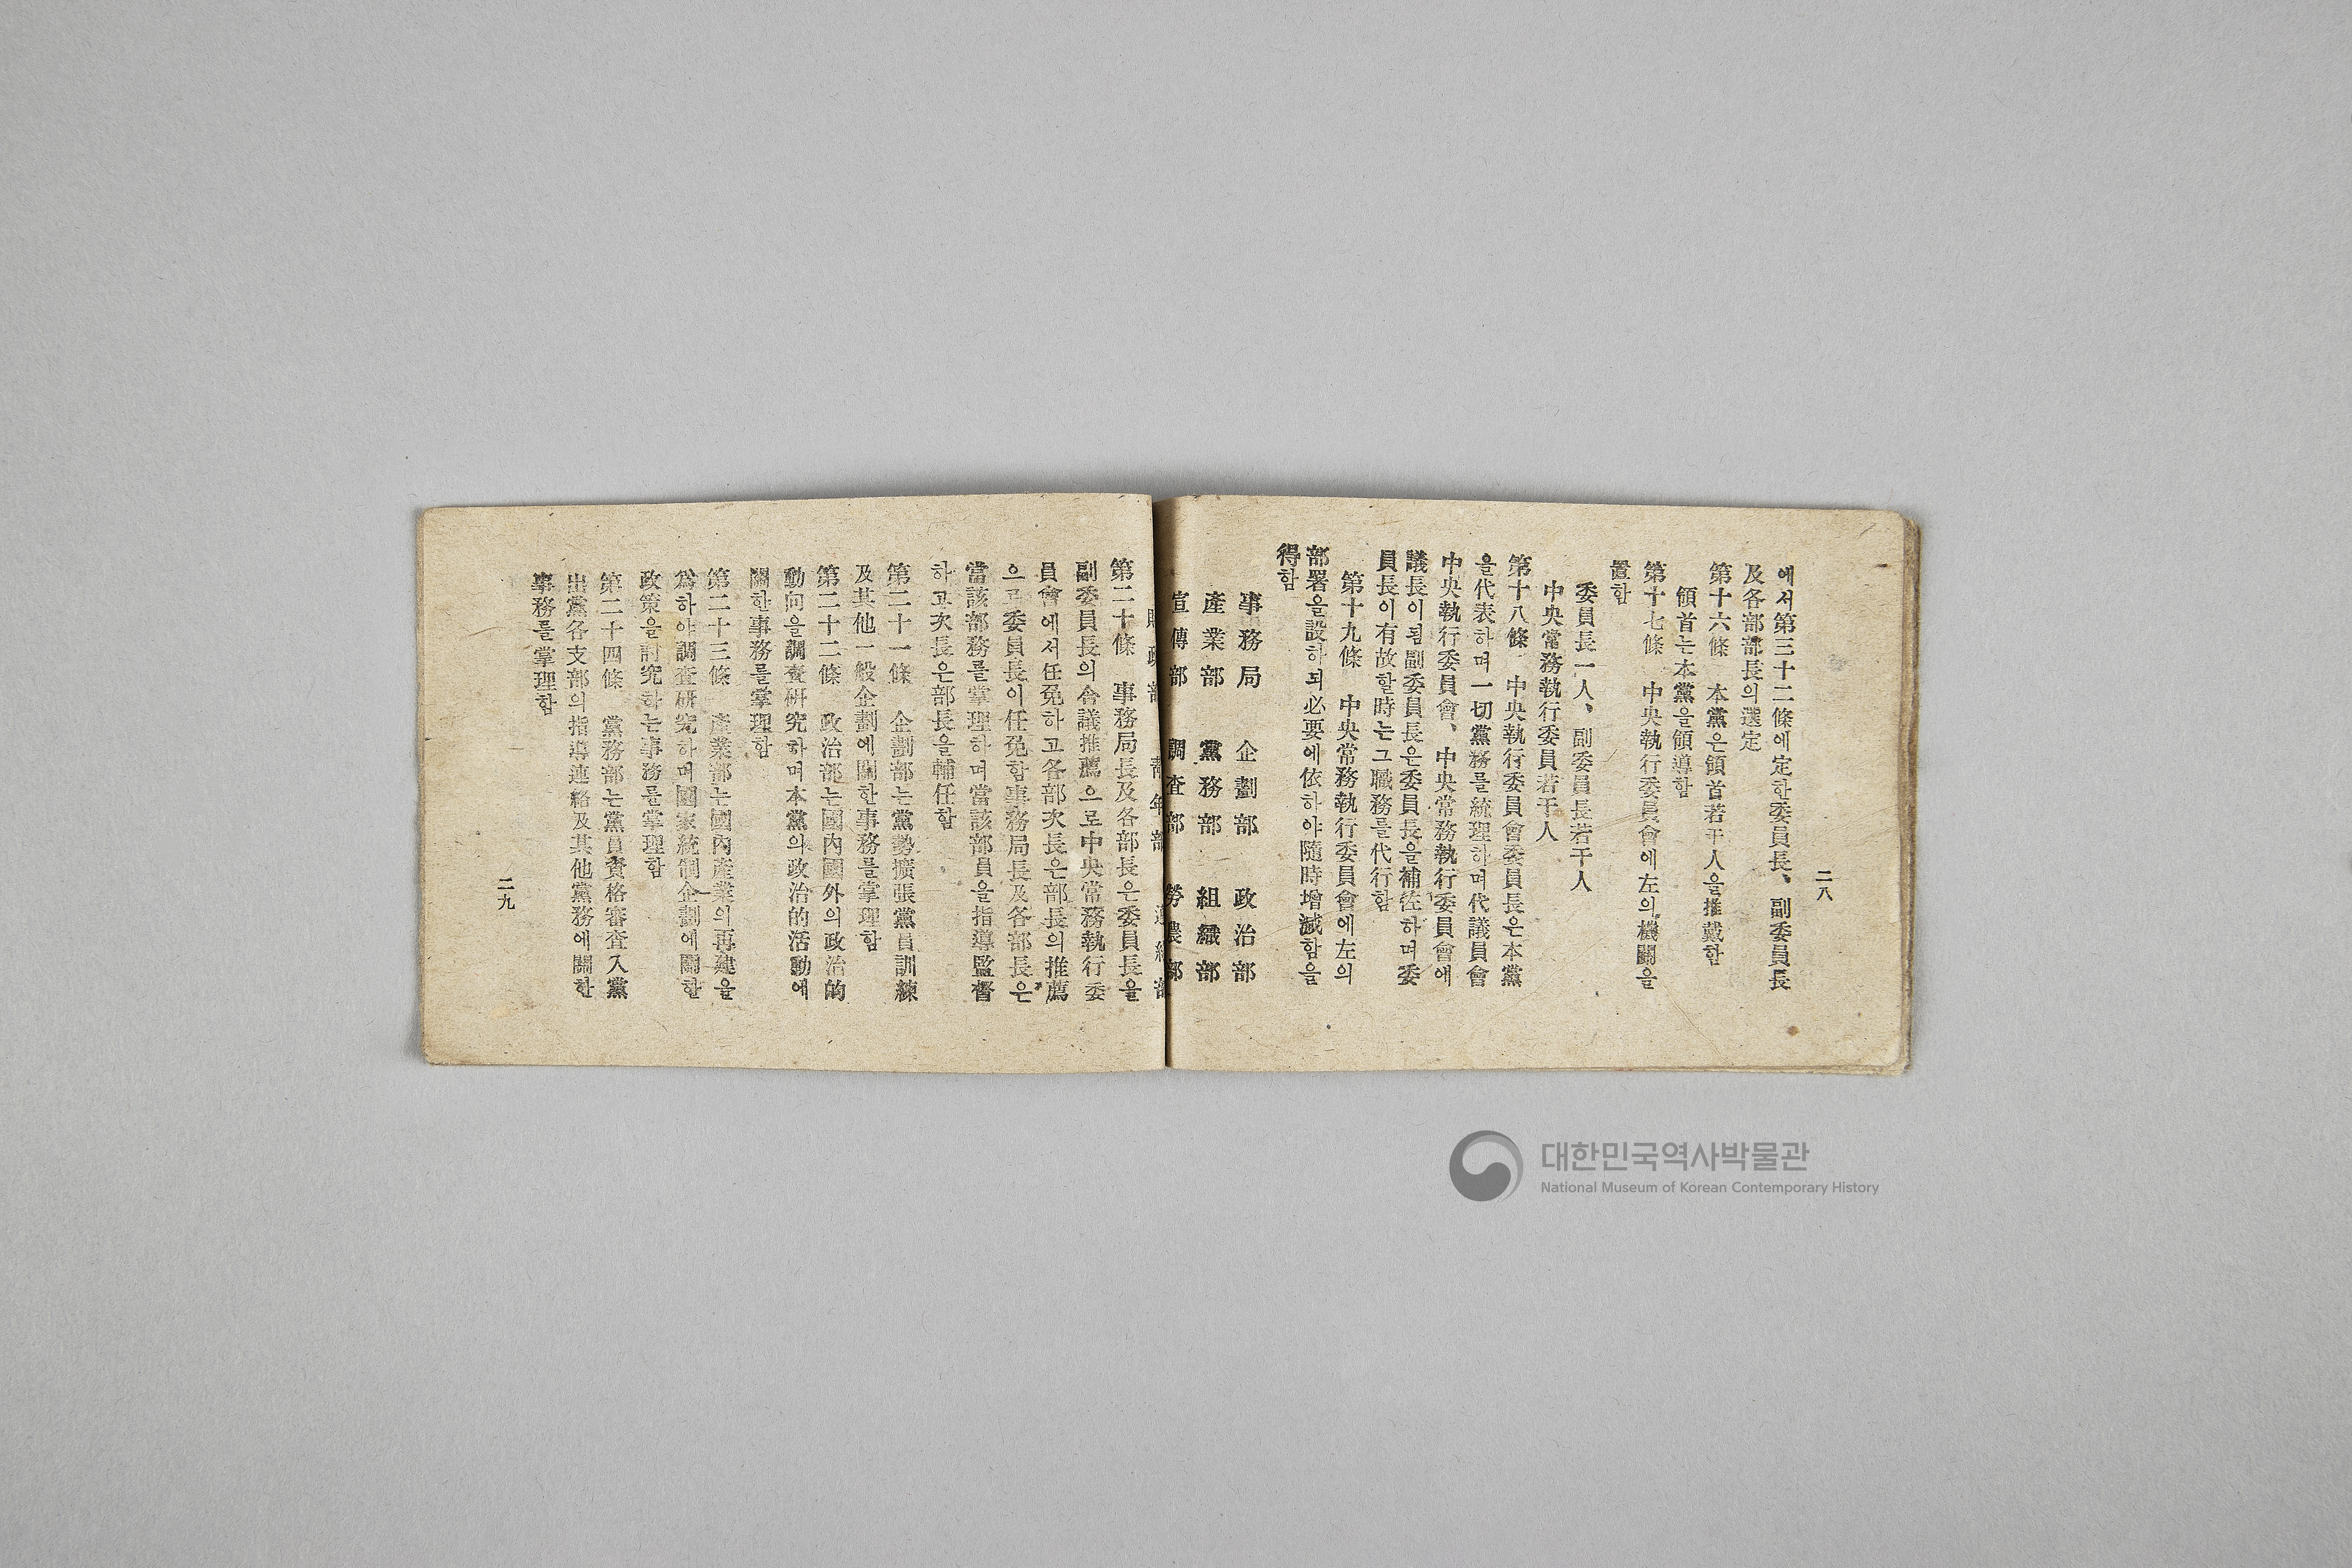 二八
에서第三十二條에定한委員長、副委員長
及各部部長의選定
第十六條 本黨은領首若干人을推戴함
領首는本黨을領導함
第十七條 中央執行委員會에左의機關을
置함
委員長一人、副委員長若干人
中央常務執行委員若干人
第十八條 中央執行委員會委員長은本黨
을代表하며一切黨務를統理하며代議員會
中央執行委員會、中央常務執行委員會에
議長이됨副委員長은委員長을補佐하며委
員長이有故할時는그職務를代行함
第十九條 中央常務執行委員會에左의
部署을設하되必要에依하야隨時增減함을
得함
事務局 企劃部 政治部
産業部 黨務部 組織部
宣傳部 調査部 勞農部
財政部 靑年部 連絡部
第二十條 事務局長及各部長은委員長을
副委員長의合議推薦으로中央常務執行委
員會에서任免하고各部次長은部長의推薦
으로委員長이任免함事務局長及各部長은
當該部務를掌理하며當該部員을指導監督
하고次長은部長을輔任함
第二十一條 企劃部는黨勢擴張黨員訓練
及其他一般企劃에關한事務를掌理함
第二十二條 政治部는國內國外의政治的
動向을調査硏究하며本黨의政治的活動에
關한事務를掌理함
第二十三條 産業部는國內産業의再建을
爲하야調査硏究하며國家統制企劃에關한
政策을討究하는事務를掌理함
第二十四條 黨務部는黨員資格審査入黨
出黨各支部의指導連絡及其他黨務에關한
事務를掌理함
二九
대한민국역사박물관
National Museum of Korean Contemporary History